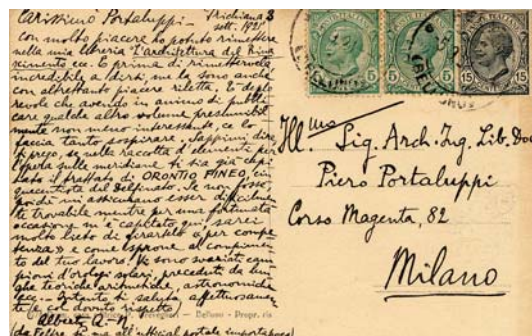 Carissimo Portaluppi — Trichiana 3
sett. 1925
con molto piacere ho potuto rimettere
nella mia libreria "L'architettura del Rina
scimento ecc. E prima di rimettervela
incredibile a dirsi, me la sono anche
con altrettanto piacere riletta. È deplo
revole che avendo in animo di pubbli
care qualche altro volume presumibil
mente non meno interessante, ce lo
faccia tanto sospirare. Sappimi dire
ti prego, se nella raccolta d'elementi per
l'opera sulle meridiane ti sia già capi
tato il trattato di ORONTIO FINEO, cin
quecentista del Delfinato. Se non fosse,
poiché mi assicurano esser difficilmen
te trovabile mentre per una fortunata
occasione m'è capitato qui, sarei
molto lieto di girartelo "per compe
tenza" e come sprone al compimen
to del tuo lavoro. Vi sono svariati cam
pioni d'orologi solari, preceduti da lun
ghe teorie aritmetiche, astronomiche
ecc. — Intanto ti saluta affettuosamen
te (e col dovuto rispetto)
Alberto
Belluno - Propr. ris
POSTE ITALIANE
5
5
15
(BELLUNO)
Ill.mo Sig. Arch. Ing. Lib. Doc
Piero Portaluppi
Corso Magenta, 82
Milano